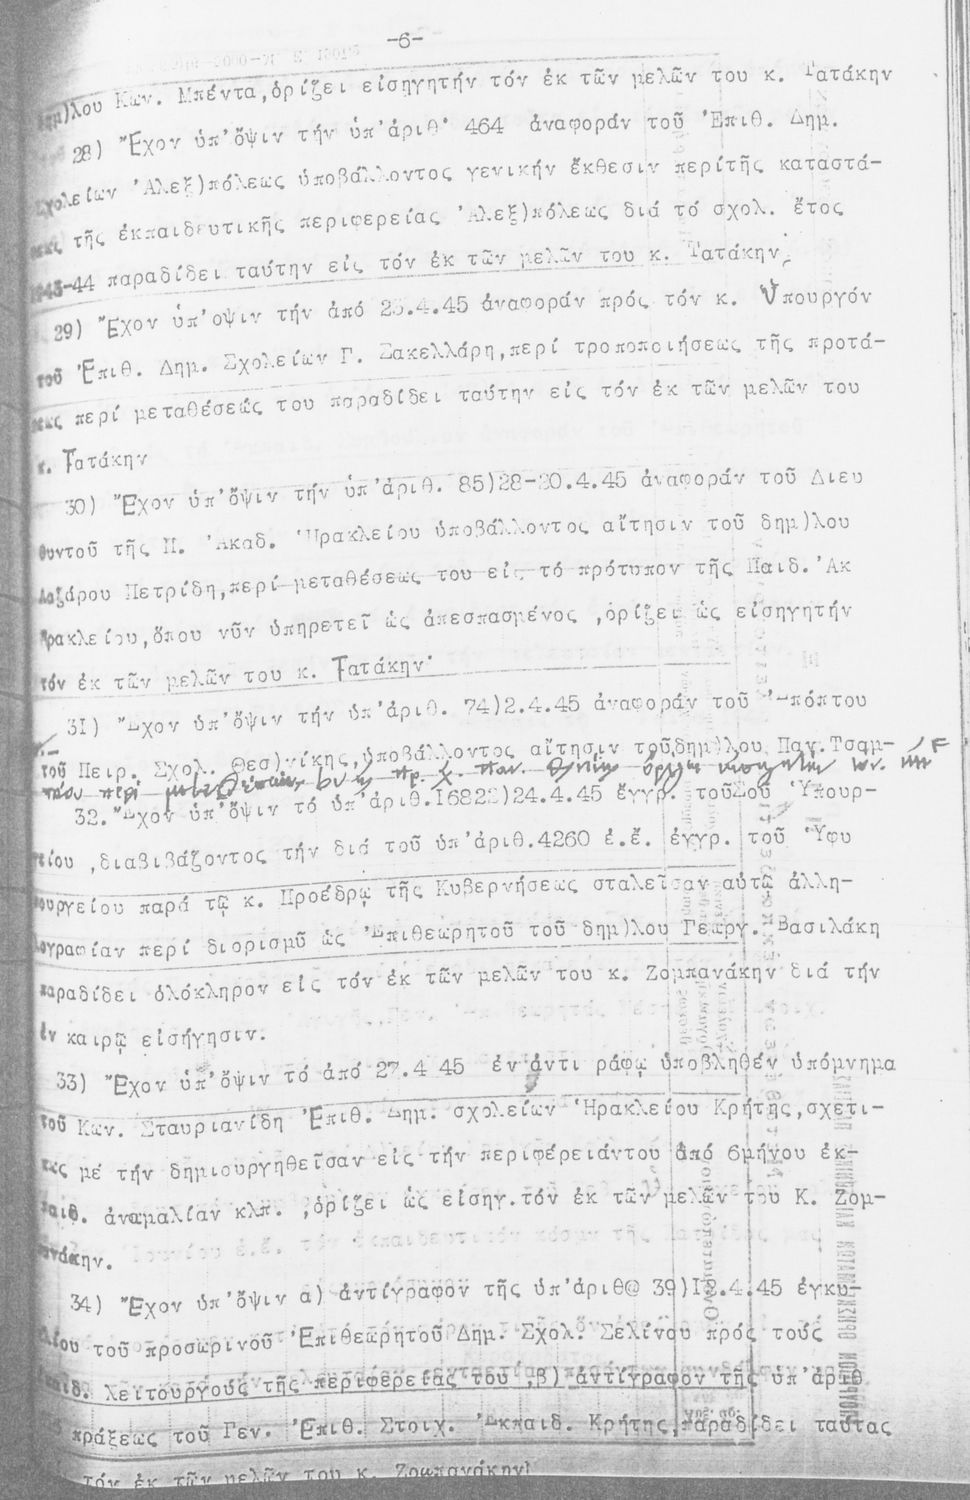 -6-
δημ)λου Κων. Μπέντα,ὁρίζει εἰσηγητήν τόν ἐκ τῶν μελῶν του κ. Τατάκην
28) Ἔχον ὑπ'ὄψιν τήν ὑπ'ἀριθ' 464 ἀναφοράν τοῦ Ἐπιθ. Δημ.
Σχολείων Ἀλεξ)πόλεως ὑποβάλλοντος γενικήν ἔκθεσιν περίτῆς καταστά-
σεως τῆς ἐκπαιδευτικῆς περιφερείας Ἀλεξ)πόλεως διά τό σχολ. ἔτος
1943-44 παραδίδει ταύτην εἰς τόν ἐκ τῶν μελῶν του κ. Τατάκην.
29) Ἔχον ὑπ'οψιν τήν ἀπό 23.4.45 ἀναφοράν πρός τόν κ. Ὑπουργόν
τοῦ Ἐπιθ. Δημ. Σχολείων Γ. Σακελλάρη,περί τροποποιήσεως τῆς προτά-
σεως περί μεταθέσεώς του παραδίδει ταύτην εἰς τόν ἐκ τῶν μελῶν του
κ. Τατάκην
30) Ἔχον ὑπ'ὄψιν τήν ὑπ'ἀριθ. 85)28-20.4.45 ἀναφοράν τοῦ Διευ
θυντοῦ τῆς Π. Ἀκαδ. Ἡρακλείου ὑποβάλλοντος αἴτησιν τοῦ δημ)λου
Λαζάρου Πετρίδη,περί μεταθέσεως του εἰς τό πρότυπον τῆς Παιδ. Ἀκ
Ἡρακλείου,ὅπου νῦν ὑπηρετεῖ ὡς ἀπεσπασμένος ,ὁρίζει ὡς εἰσηγητήν
τόν ἐκ τῶν μελῶν του κ. Τατάκην.
31) Ἔχον ὑπ'ὄψιν τήν ὑπ'ἀριθ. 74)2.4.45 ἀναφοράν τοῦ Ἐπόπτου
τοῦ Πειρ. Σχολ. Θεσ)νίκης,ὑποβάλλοντος αἴτησιν τοῦδημ)λου Παν.Τσαμ-
περί μεταθέσεως
32.Ἔχον ὑπ'ὄψιν τό ὑπ'ἀριθ.16822)24.4.45 ἔγγρ. τοῦΣοῦ Ὑπουρ-
γείου ,διαβιβάζοντος τήν διά τοῦ ὑπ'ἀριθ.4260 ἐ.ἔ. ἐγγρ. τοῦ Ὑφυ
πουργείου παρά τῷ κ. Προέδρῳ τῆς Κυβερνήσεως σταλεῖσαν αὐτῷ ἀλλη-
λογραφίαν περί διορισμῦ ὡς Ἐπιθεωρητοῦ τοῦ δημ)λου Γεωργ. Βασιλάκη
παραδίδει ὁλόκληρον εἰς τόν ἐκ τῶν μελῶν του κ. Ζομπανάκην διά τήν
ἐν καιρῷ εἰσήγησιν.
33) Ἔχον ὑπ'ὄψιν τό ἀπό 27.4 45 ἐν ἀντι ράφῳ ὑποβληθέν ὑπόμνημα
τοῦ Κων. Σταυριανίδη Ἐπιθ. Δημ. σχολείων Ἡρακλείου Κρήτης,σχετι-
κῶς μέ τήν δημιουργηθεῖσαν εἰς τήν περιφέρειάντου ἀπό 6μήνου ἐκ-
παιδ. ἀνωμαλίαν κλπ. ,ὁρίζει ὡς εἰσηγ.τόν ἐκ τῶν μελῶν του Κ. Ζομ-
πανάκην.
34) Ἔχον ὑπ'ὄψιν α) ἀντίγραφον τῆς ὑπ'ἀριθ@ 39)12.4.45 ἐγκυ-
κλίου τοῦ προσωρινοῦ Ἐπιθεωρητοῦ Δημ. Σχολ. Σελίνου πρός τούς
ἐκπαιδ. λειτουργούς τῆς περιφερείας του ,β) ἀντίγραφον τῆς ὑπ'ἀριθ
πράξεως τοῦ Γεν. Ἐπιθ. Στοιχ. Ἐκπαιδ. Κρήτης,παραδίδει ταύτας
τόν ἐκ τῶν μελῶν του κ. Ζομπανάκην